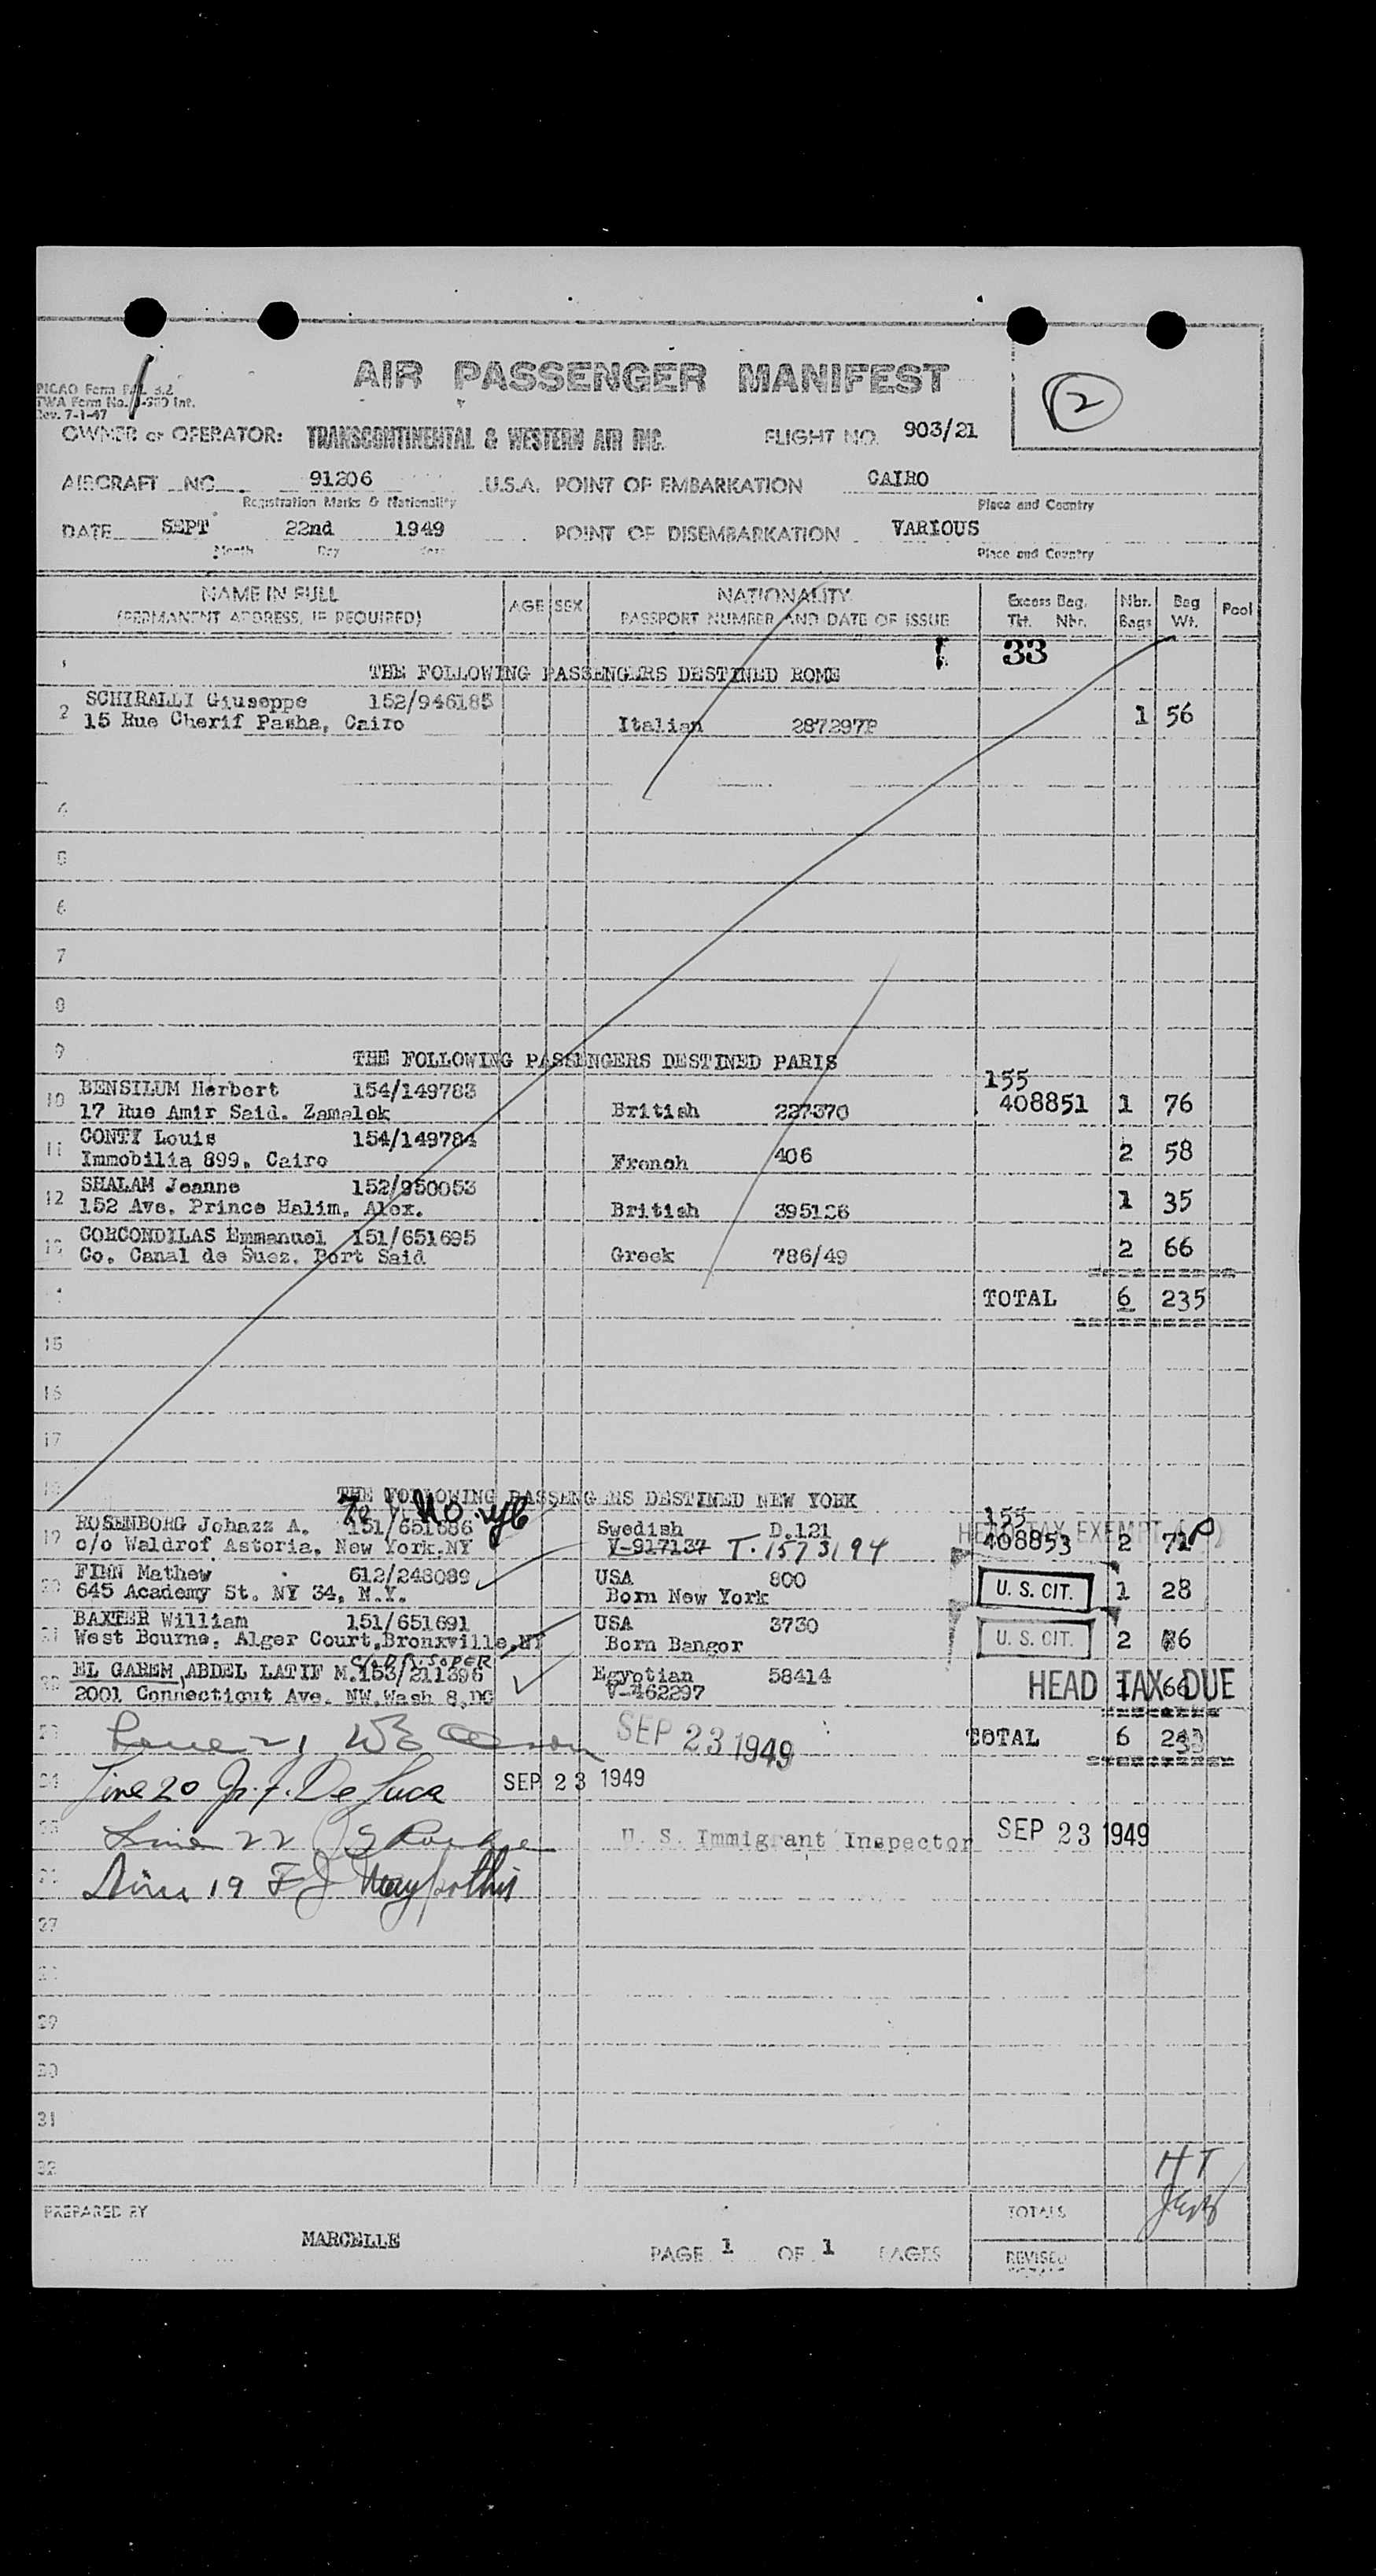 AIR PASSENGER MANIFEST
2
Rev. 7-1-47
OWNER or OPERATOR: TRANSCONTINENTAL & WESTERN AIR INC. FLIGHT NO. 903/21
AIRCRAFT NO. 91206 U.S.A. POINT OF EMBARKATION CAIRO
Registration Marks & Nationality Place and Country
DATE SEPT 22nd 1949 POINT OF DISEMBARKATION VARIOUS
Month Day Place and Country
NAME IN FULL AGE SEX NATIONALITY Excess Bag. Nbr. Bag Pool
(PERMANENT ADDRESS, IF REQUIRED) PASSPORT NUMBER AND DATE OF ISSUE Tkt. Nbr. Bags Wt.
33
THE FOLLOWING PASSENGERS DESTINED ROME
SCHIRALLI Giuseppe 152/946185
2 15 Rue Cherif Pasha, Cairo Italian 287297P 1 56
4
5
6
7
8
9 THE FOLLOWING PASSENGERS DESTINED PARIS
BENSILUM Herbert 154/149783 155
10 17 Rue Amir Said. Zamalek British 227370 408851 1 76
CONTI Louis 154/149784
11 Immobilia 899, Cairo French 406 2 58
SHALAM Jeanne 152/950053
12 152 Ave. Prince Halim, Alex. British 395126 1 35
CORCONDILAS Emmanuel 151/651695
13 Co. Canal de Suez. Port Said Greek 786/49 2 66
TOTAL 6 235
15
16
17
18 THE FOLLOWING PASSENGERS DESTINED NEW YORK
ROSENBORG Johazz A. 151/651686 Swedish D.121 155
HEAD TAX EXEMPT
19 c/o Waldrof Astoria, New York.NY V-917137 T-1573194 408853 2 71
FINN Mathew 612/248089 USA 800
20 645 Academy St. NY 34, N.Y. Born New York U. S. CIT. 1 28
BAXTER William 151/651691 USA 3730
21 West Bourne, Alger Court,Bronxville,NY Born Bangor U. S. CIT. 2 76
EL GAREM ABDEL LATIF M.153/211396 Egyptian 58414
22 2001 Connecticut Ave. NW.Wash 8,DC V-462297 HEAD TAX DUE 1 66
23 SEP 23 1949 TOTAL 6
24 Line 20 J. F. De Luca SEP 23 1949
25 Line 22 U. S. Immigrant Inspector SEP 23 1949
Line 19 F J
27
28
29
30
31
32
H T
PREPARED BY TOTALS
MARCELLE PAGE 1 OF 1 PAGES REVISED